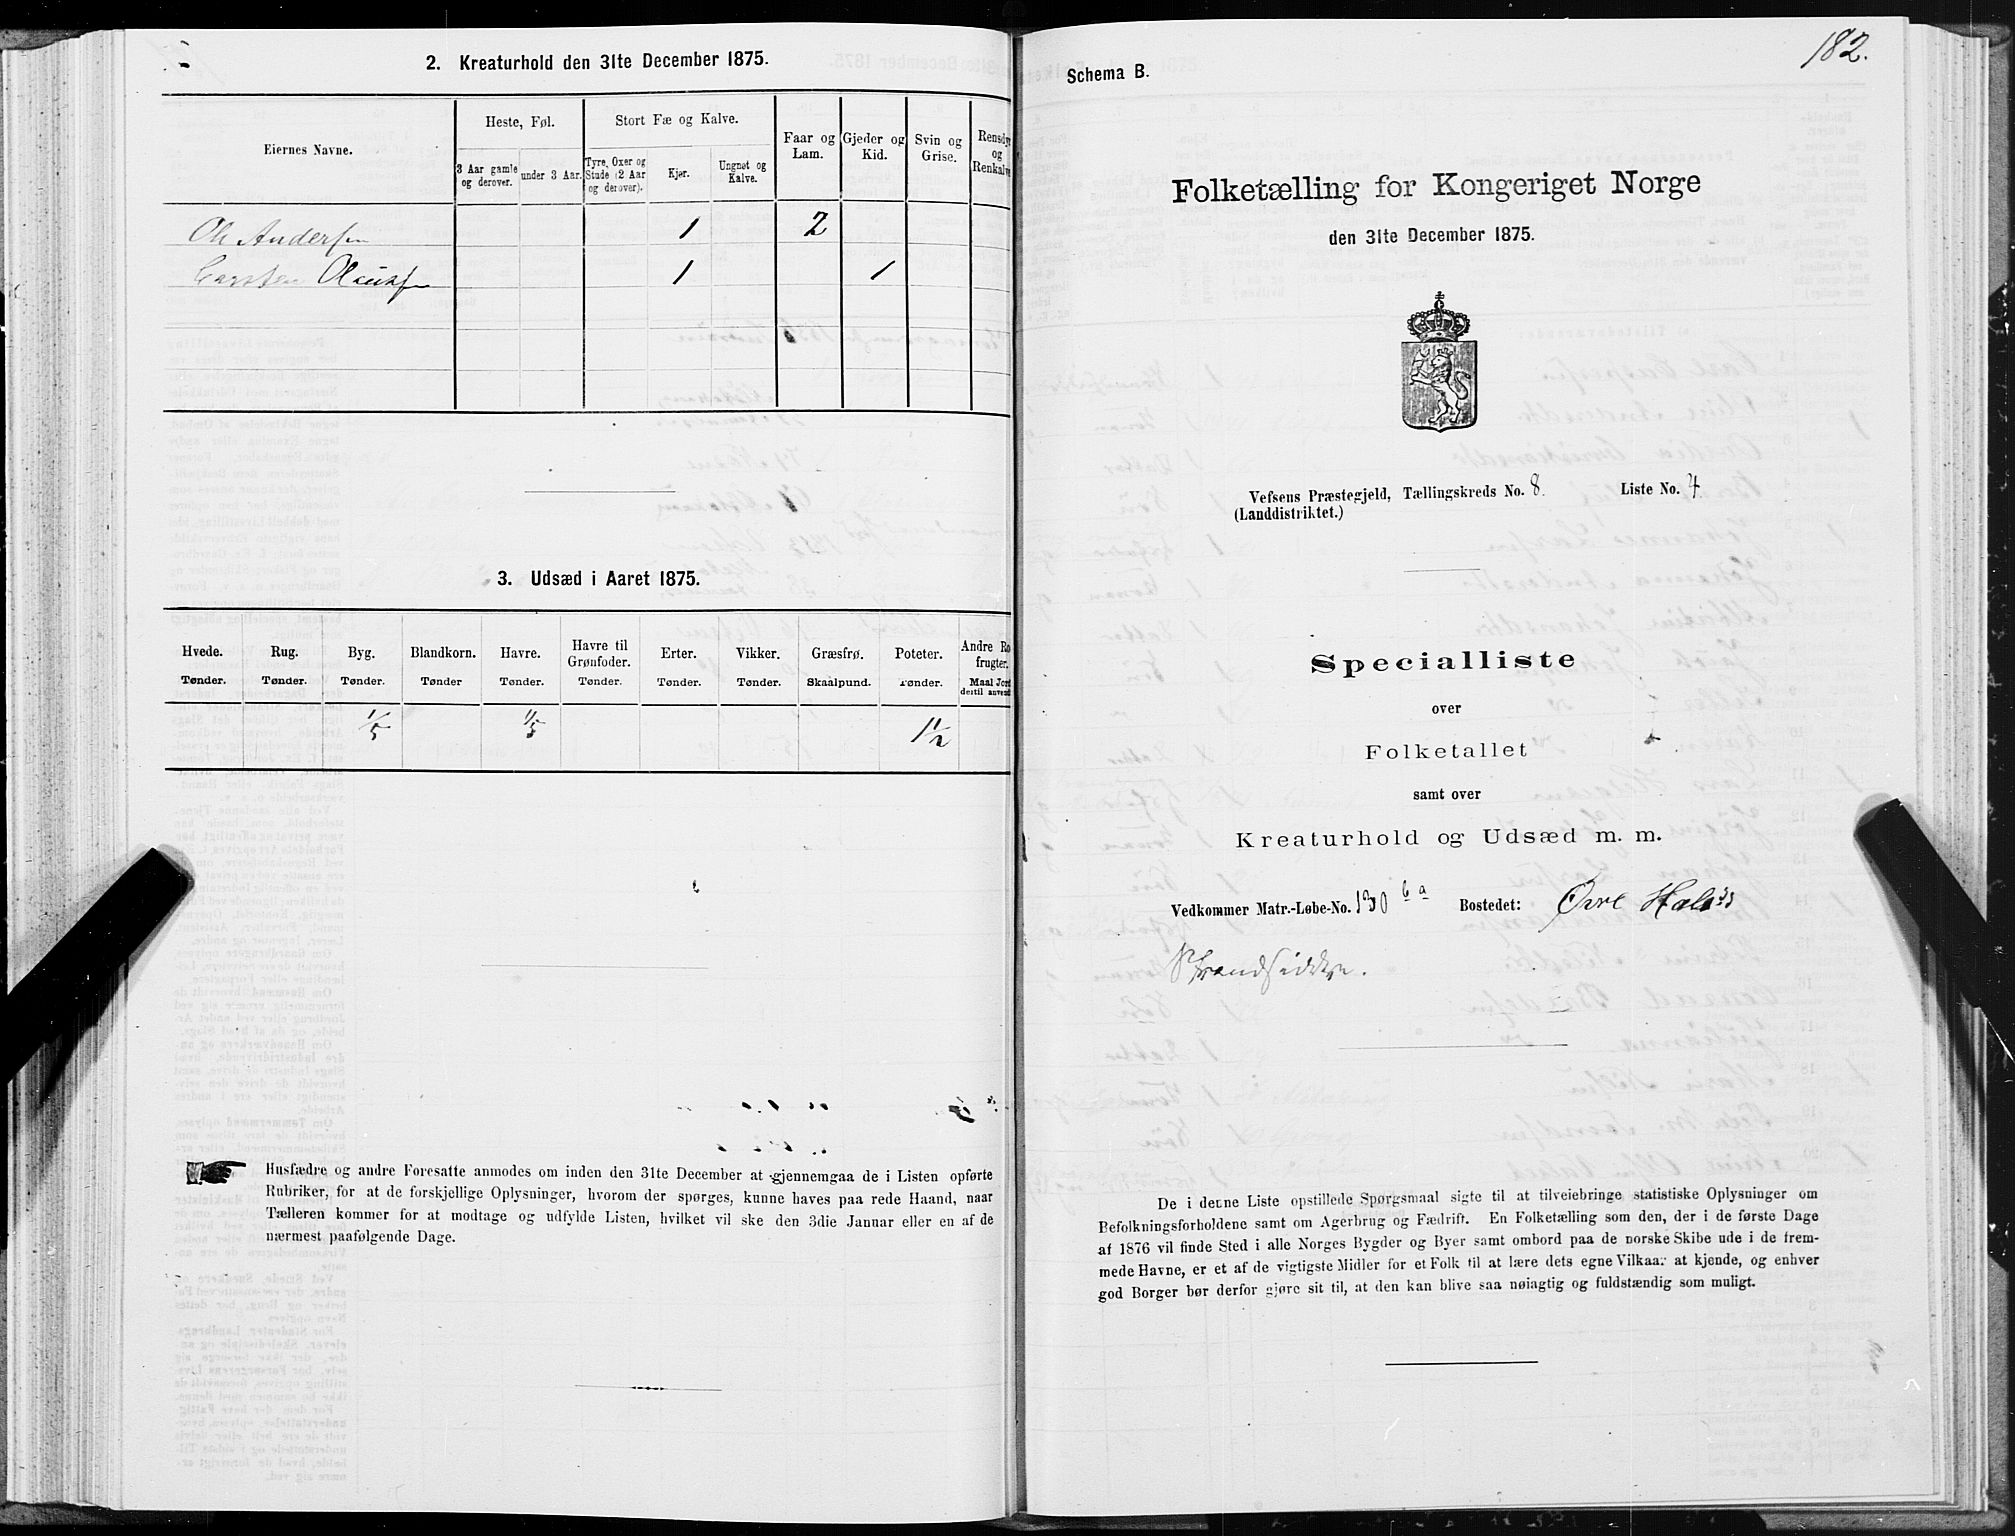 2. Kreaturhold den 31te December 1875.
Eiernes Navne.
Heste, Føl.
Stort Fæ og Kalve.
Faar og
Lam.
Gjeder og
Kid.
Svin og
Grise.
Rensdyr
og
Renkalve
3 Aar gamle
og derover.
under 3 Aar.
Tyre, Oxer og
Stude (2 Aar
og derover).
Kjør.
Ungnøt og
Kalve.
Ole Andersen 1 2
Carsten Olausen 1 1
3. Udsæd i Aaret 1875.
Hvede. Rug. Byg. Blandkorn. Havre. Havre til Grønfoder. Erter. Vikker. Græsfrø. Poteter. Andre Rofrugter.
Tønder. Tønder. Tønder. Tønder Tønder. Tønder. Tønder. Tønder. Skaalpund. Tønder. Maal Jord dertil anvendt
1/5 1/5 1 1/2
Husfædre og andre Foresatte anmodes om inden den 31te December at gjennemgaa de i Listen opførte
Rubriker, for at de forskjellige Oplysninger, hvorom der spørges, kunne haves paa rede Haand, naar
Tælleren kommer for at modtage og udfylde Listen, hvilket vil ske den 3die Januar eller en af de
nærmest paafølgende Dage.
182.
Schema B.
Folketælling for Kongeriget Norge
den 31te December 1875.
Vefsens Præstegjeld, Tællingskreds No. 8. Liste No. 4
(Landdistriktet.)
Specialliste
over
Folketallet
samt over
Kreaturhold og Udsæd m. m.
Vedkommer Matr.-Løbe-No. 130 b a Bostedet: Øvre Hals
Strandsidden.
De i denne Liste opstillede Spørgsmaal sigte til at tilveiebringe statistiske Oplysninger om
Befolkningsforholdene samt om Agerbrug og Fædrift. En Folketælling som den, der i de første Dage
af 1876 vil finde Sted i alle Norges Bygder og Byer samt ombord paa de norske Skibe ude i de frem-
mede Havne, er et af de vigtigste Midler for et Folk til at lære dets egne Vilkaar at kjende, og enhver
god Borger bør derfor gjøre sit til, at den kan blive saa nøiagtig og fuldstændig som muligt.